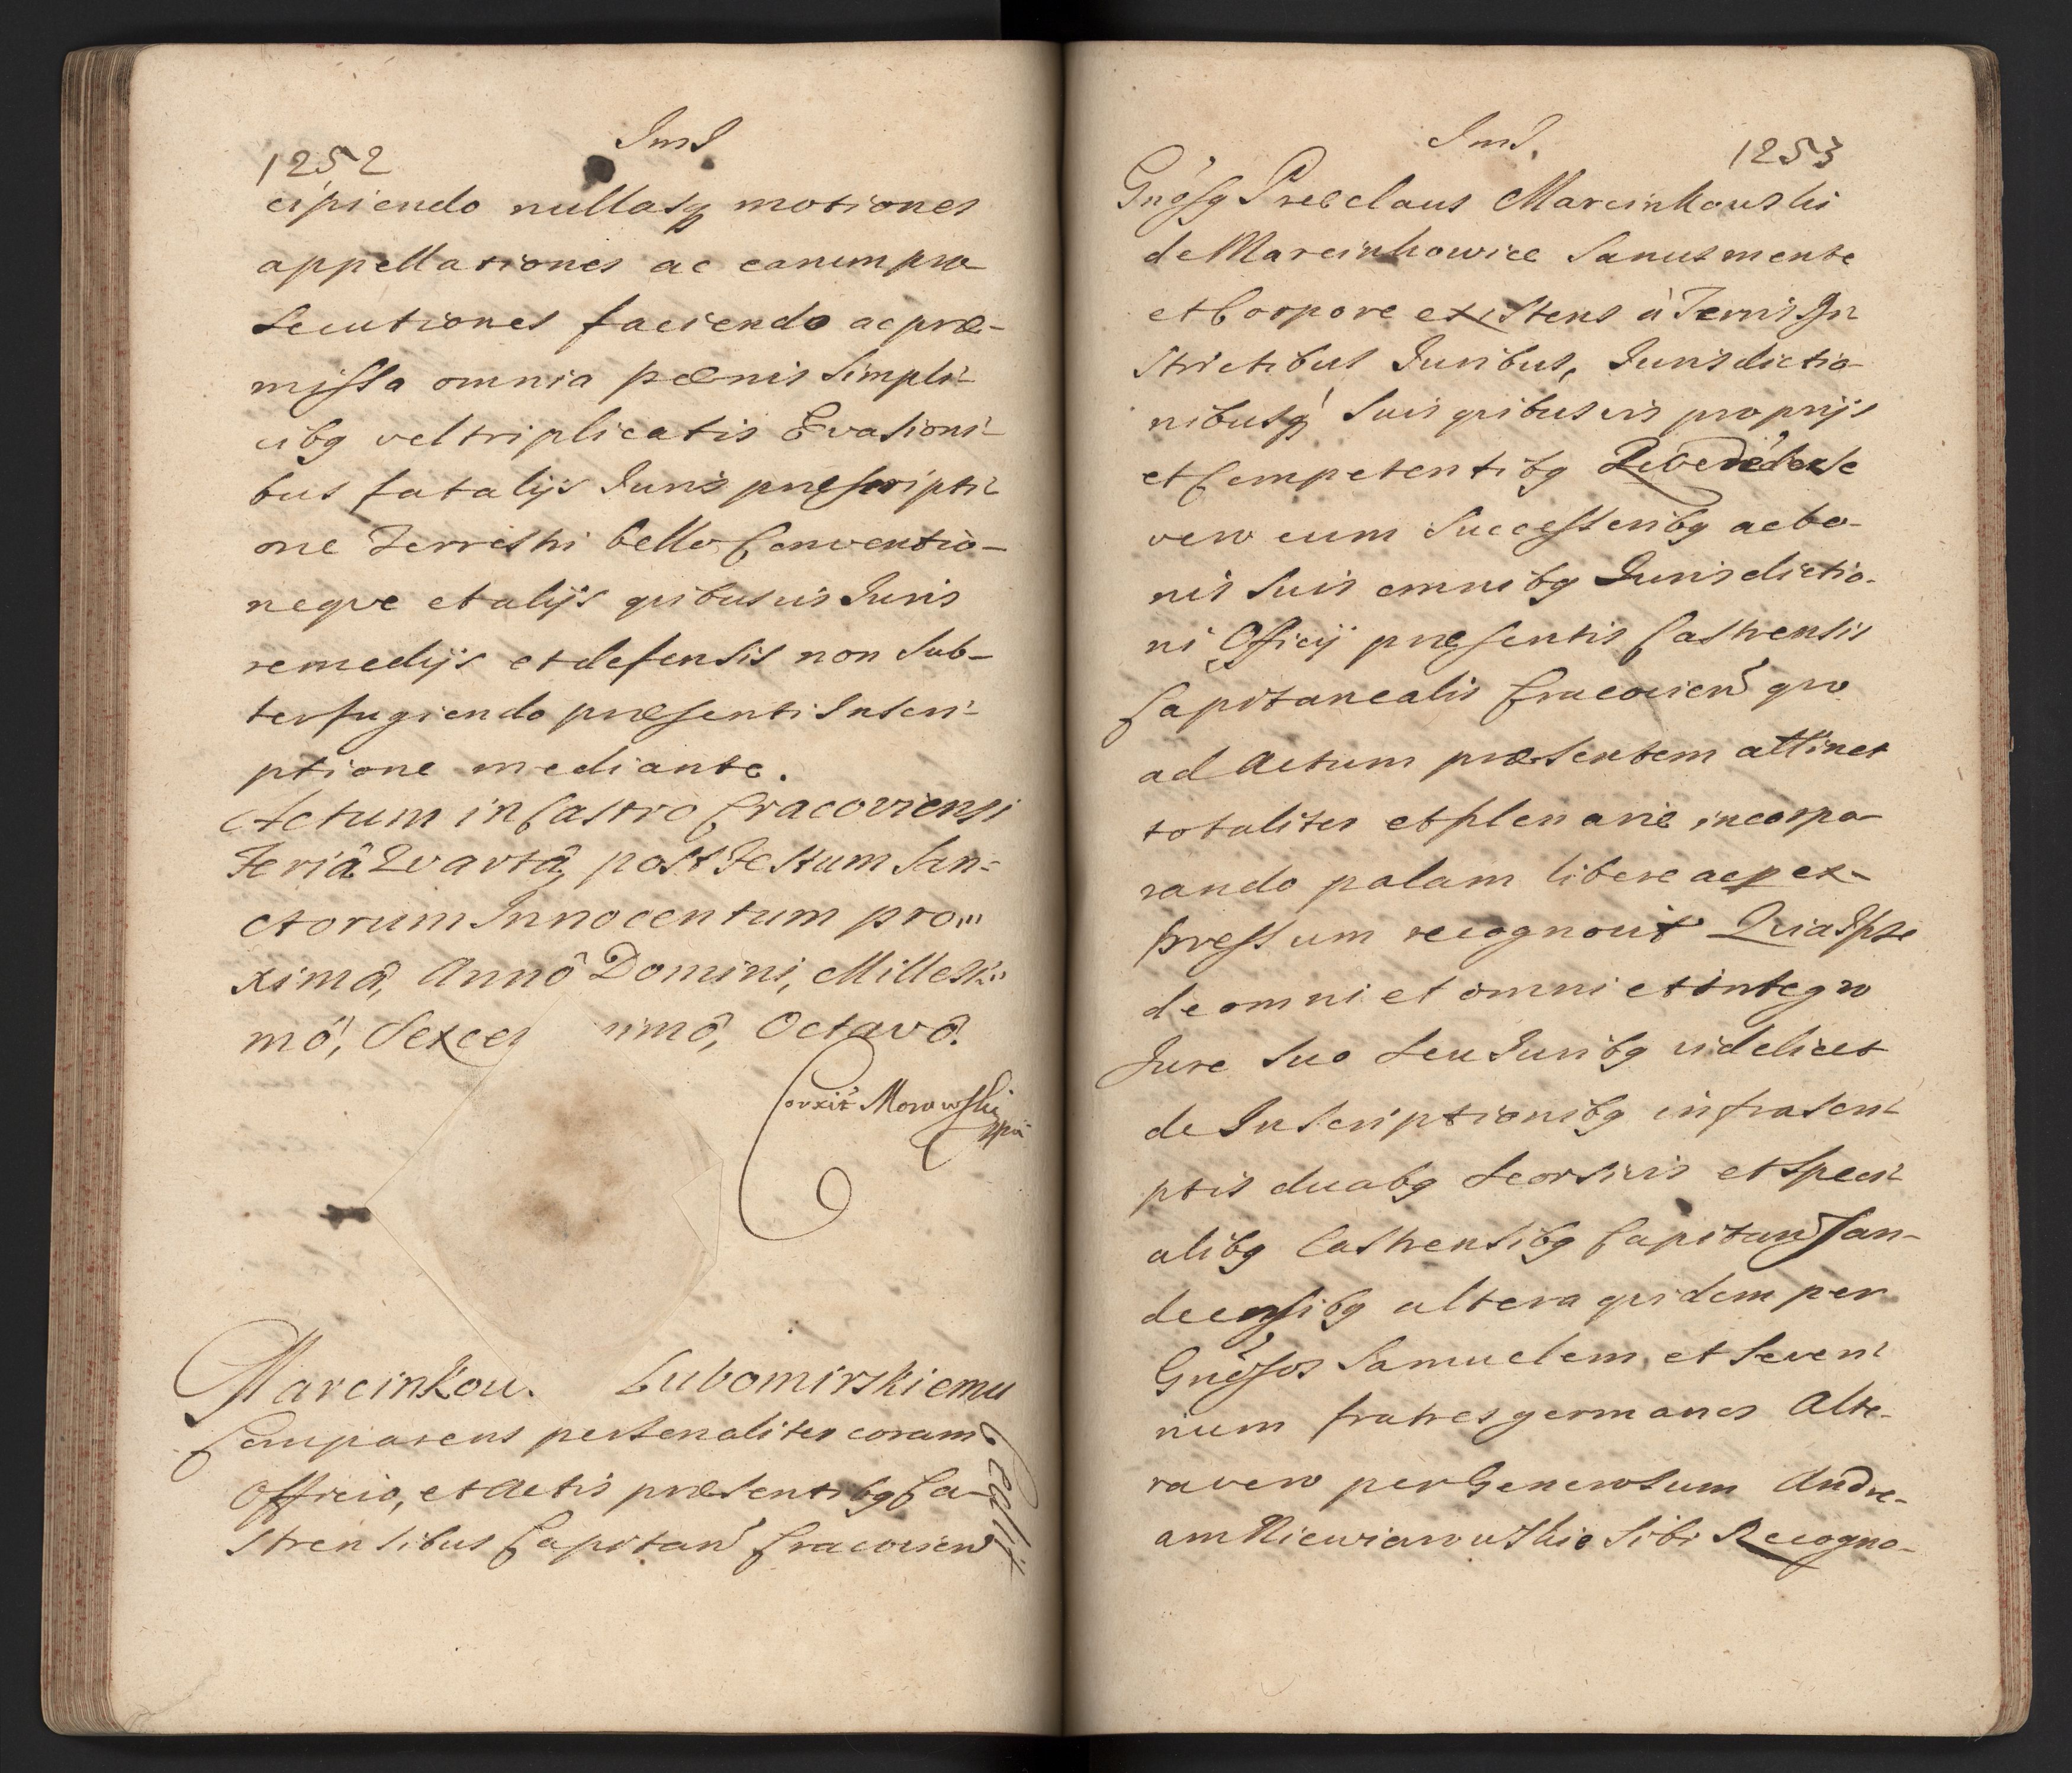 Ind
1252
cipiendo nullasq motiones
appellationes ac earum pro-
secutiones faciendo ac præ-
missa omnia pænis simpli-
cibg vel triplicatis Evasioni-
bus fatalijs Juris præscripti-
one Terrestri bello Conventio-
neqve et alijs qvibusvis Juris
remedijs et defensis non sub-
terfugiendo præsenti Inscri-
ptione mediante.
Actum in Castro Cracoviensi
Feriâ Qvartâ, post Festum San-
ctorum Innocentum pro-
ximâ, Annô Domini, Millesi-
mô, Sexcen imô, Octavô.
Marcinkow. Lubomirskiemu
Cessit
Comparens personaliter coram
Officio, et Actis præsentibg Ca-
strensibus Capitan Cracovien
Ind.
1253
Gnosg Preeclaus Marcinkowski
de Marcinkowice sanus mente
et Corpore existens à Terris In
strictibus Juribus, Jurisdictio-
nibusq suis qvibusvis proprijs
et Competentibg Recedendo se
vero cum Successoribg ac bo-
nis suis omnibg Jurisdictio-
ni Officij præsentis Castrensis
Capitanealis Cracovien qvo
ad Actum præsentem attinet
totaliter et plenarie incorpo-
rando palam libere acp ex-
pressum recognovit Qvia Ipse
de omni et omni et integro
Jure suo seu Juribg videlicet
de Inscriptionibg infrascri-
ptis duabg seorsivis et speci-
alibg Castrensibg Capitan San-
decensibg altera qvidem per
Gnosos Samuelem, et Severi-
num fratres germanos Alte-
ra vero per Generosum Andre-
am Niewiarowskie sibi Recogno-